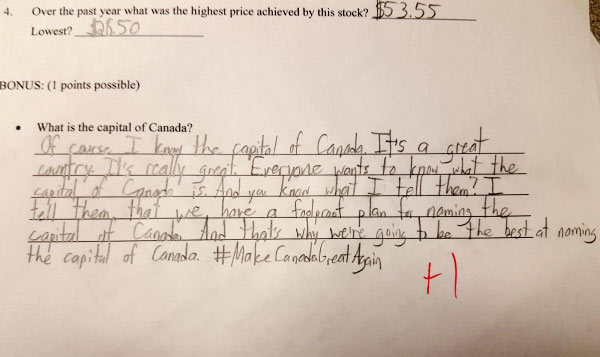 4. Over the past year what was the highest price achieved by this stock? $53.55
Lowest? $28.50
BONUS: (1 points possible)
• What is the capital of Canada?
Of course I know the capital of Canada. It's a great
country. It's really great. Everyone wants to know what the
capital of Canada is. And you know what I tell them? I
tell them, that we have a foolproof plan for naming the
capital of Canada. And that's why we're going to be the best at naming
the capital of Canada. #MakeCanadaGreatAgain
+1